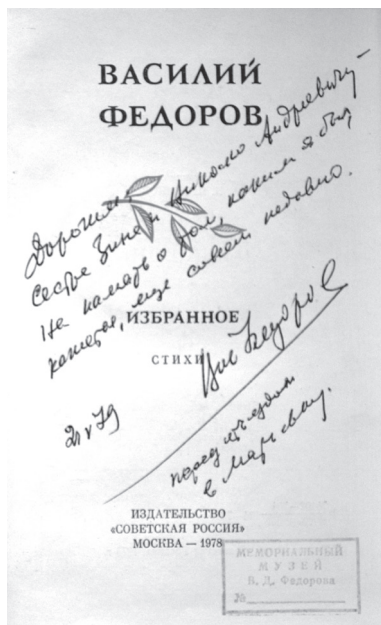 ВАСИЛИЙ
ФЕДОРОВ
Дорогим
сестре Зинаи Николаю Андреевичу —
На память о том, каким я был
кажется, еще совсем недавно.
ИЗБРАННОЕ
СТИХИ
Вас Федоров
21 V 79
перед отъездом
в Марьевку.
ИЗДАТЕЛЬСТВО
«СОВЕТСКАЯ РОССИЯ»
МОСКВА — 1978
МЕМОРИАЛЬНЫЙ
МУЗЕЙ
В. Д. Федорова
№